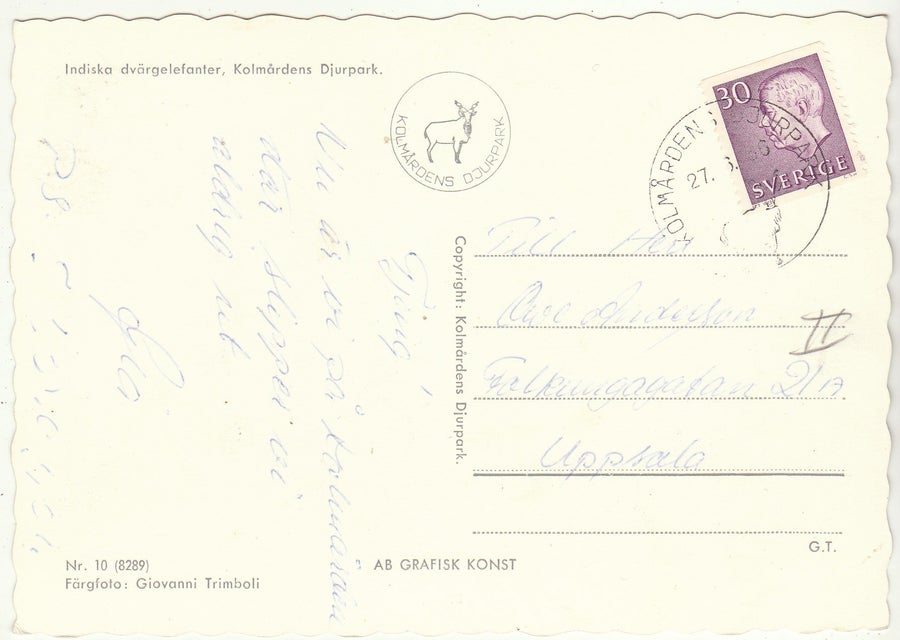 Indiska dvärgelefanter, Kolmårdens Djurpark.
KOLMÅRDENS DJURPARK
30
SVERIGE
KOLMÅRDENS DJURPARK
27.
Tjing!
Nu är vi på Kolmården
där slipper vi
aldrig ut
P.S.
Copyright: Kolmårdens Djurpark.
Till Herr
Ove Anderson
Falkungagatan 21A
Uppsala
II
G.T.
Nr. 10 (8289)
Färgfoto: Giovanni Trimboli
AB GRAFISK KONST